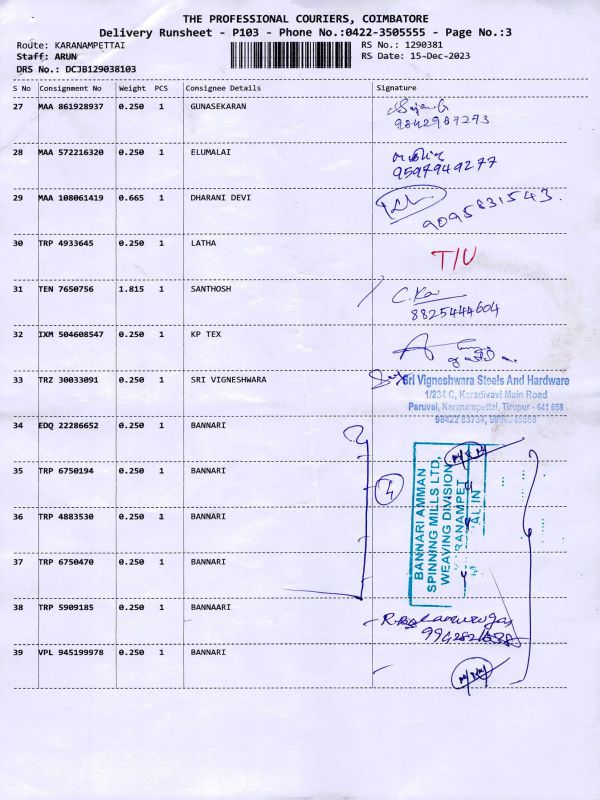 THE PROFESSIONAL COURIERS, COIMBATORE
Delivery Runsheet - P103 - Phone No.:0422-3505555 - Page No.:3
Route: KARANAMPETTAI RS No.: 1290381
Staff: ARUN RS Date: 15-Dec-2023
DRS No.: DCJB129038103
S No Consignment No Weight PCS Consignee Details Signature
27 MAA 861928937 0.250 1 GUNASEKARAN
9842987293
28 MAA 572216320 0.250 1 ELUMALAI
9597949277
29 MAA 108061419 0.665 1 DHARANI DEVI
9095831543.
30 TRP 4933645 0.250 1 LATHA
T/U
31 TEN 7650756 1.815 1 SANTHOSH
8825444604
32 IXM 504608547 0.250 1 KP TEX
33 TRZ 30033091 0.250 1 SRI VIGNESHWARA Sri Vigneshwara Steels And Hardware
1/234 C, Karadivavi Main Road
Paruvai, Karanampettai, Tirupur - 641 658
34 EDQ 22286652 0.250 1 BANNARI
35 TRP 6750194 0.250 1 BANNARI
4
36 TRP 4883530 0.250 1 BANNARI
BANNARI AMMAN
SPINNING MILLS LTD.
WEAVING DIVISION
37 TRP 6750470 0.250 1 BANNARI
38 TRP 5909185 0.250 1 BANNAARI
39 VPL 945199978 0.250 1 BANNARI